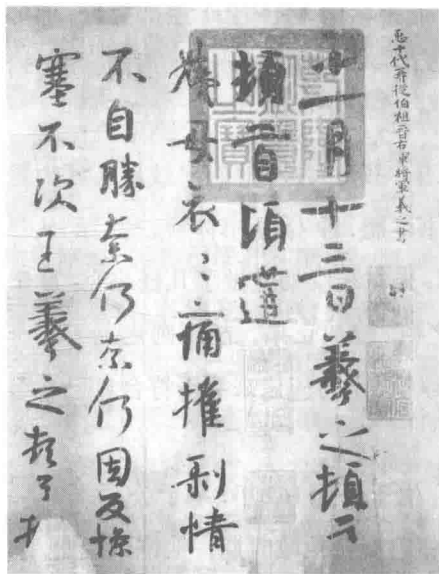 臣十代再從伯祖晉右軍將軍羲之書
十一月十三日羲之頓首
頓首頃遘
姨母哀〻痛摧剝情
不自勝奈何奈何因反慘
塞不次王羲之頓首頓首